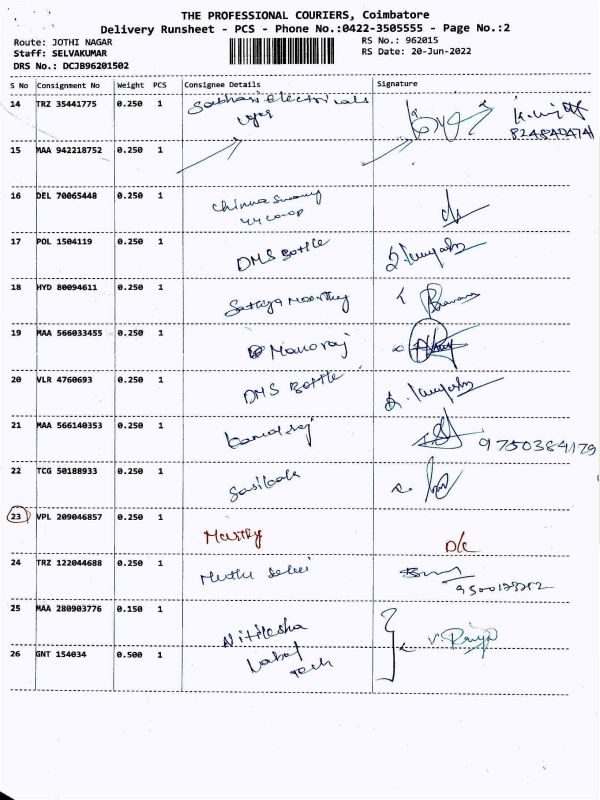 THE PROFESSIONAL COURIERS, Coimbatore
Delivery Runsheet - PCS - Phone No.:0422-3505555 - Page No.:2
Route: JOTHI NAGAR RS No.: 962015
Staff: SELVAKUMAR RS Date: 20-Jun-2022
DRS No.: DCJB96201502
S No Consignment No Weight PCS Consignee Details Signature
14 TRZ 35441775 0.250 1 electricals
8248404741
15 MAA 942218752 0.250 1
16 DEL 70065448 0.250 1 chinnaswamy
17 POL 1504119 0.250 1 DMS Bottle
18 HYD 80094611 0.250 1 Sathya moorthy
19 MAA 566033455 0.250 1 Manoraj
20 VLR 4760693 0.250 1 DMS Bottle
21 MAA 566140353 0.250 1 9750384179
22 TCG 50188933 0.250 1
23 VPL 209046857 0.250 1 D/c
24 TRZ 122044688 0.250 1 Muthu
25 MAA 280903776 0.150 1 Nitilesha
26 GNT 154034 0.500 1 Tech